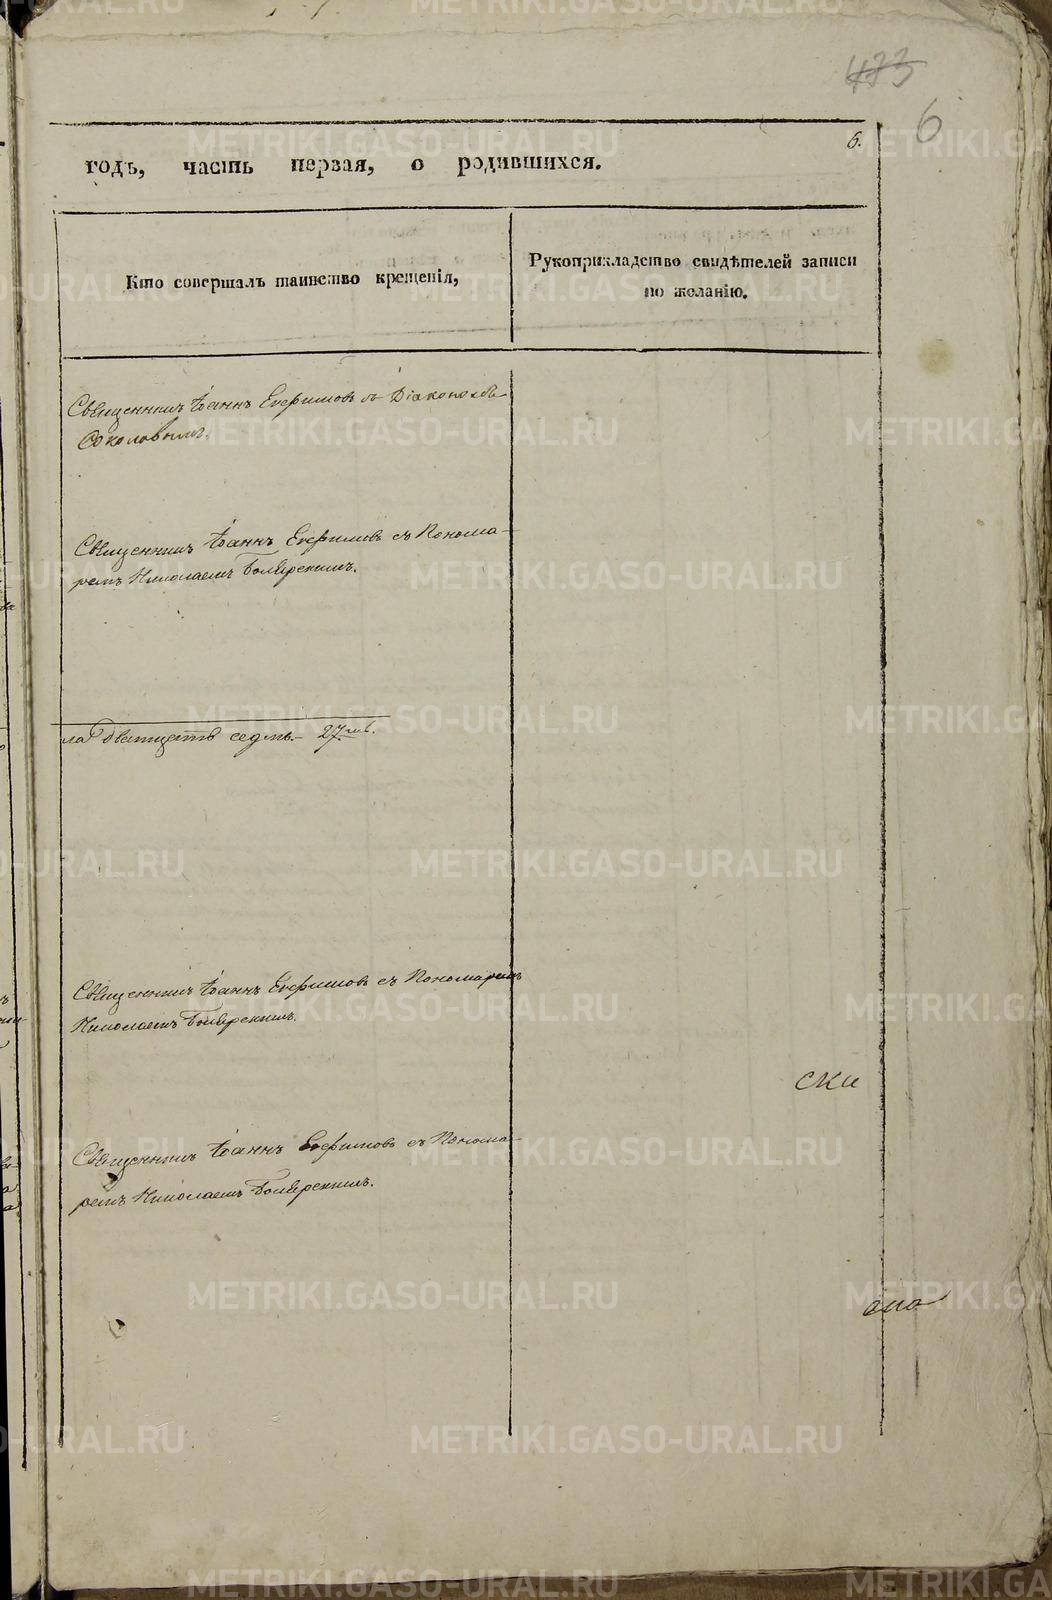 433
6
6.
годъ, часть первая, о родившихся.
Кто совершалъ таинство крещенія,
Рукоприкладство свидѣтелей записи
по желанію.
Священникъ Іоаннъ Ефримовъ съ Діакономъ
Соколовымъ.
Священникъ Іоаннъ Ефримовъ съ Понома-
ремъ Николаемъ Боярскимъ.
ла дватцеть седмь. 27.
Священникъ Іоаннъ Ефримовъ съ Пономаремъ
Николаемъ Боярскимъ.
ски
Священникъ Іоаннъ Ефримовъ съ Понома-
ремъ Николаемъ Боярскимъ.
METRIKI.GASO-URAL.RU